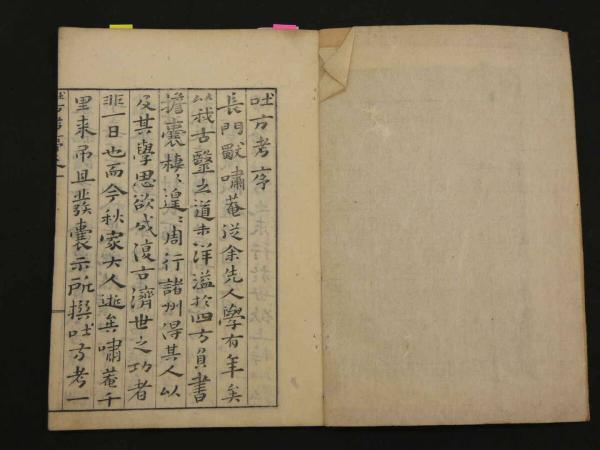 吐方考序
長門獸嘯菴從余先人學有年矣
以我古毉之道未洋溢於四方負書
擔囊棲〻遑〻周行諸州得其人以
及其學思欲成復古濟世之功者
非一日也而今秋家大人逝矣嘯菴千
里来吊且發囊示所撰吐方考一
吐方考序